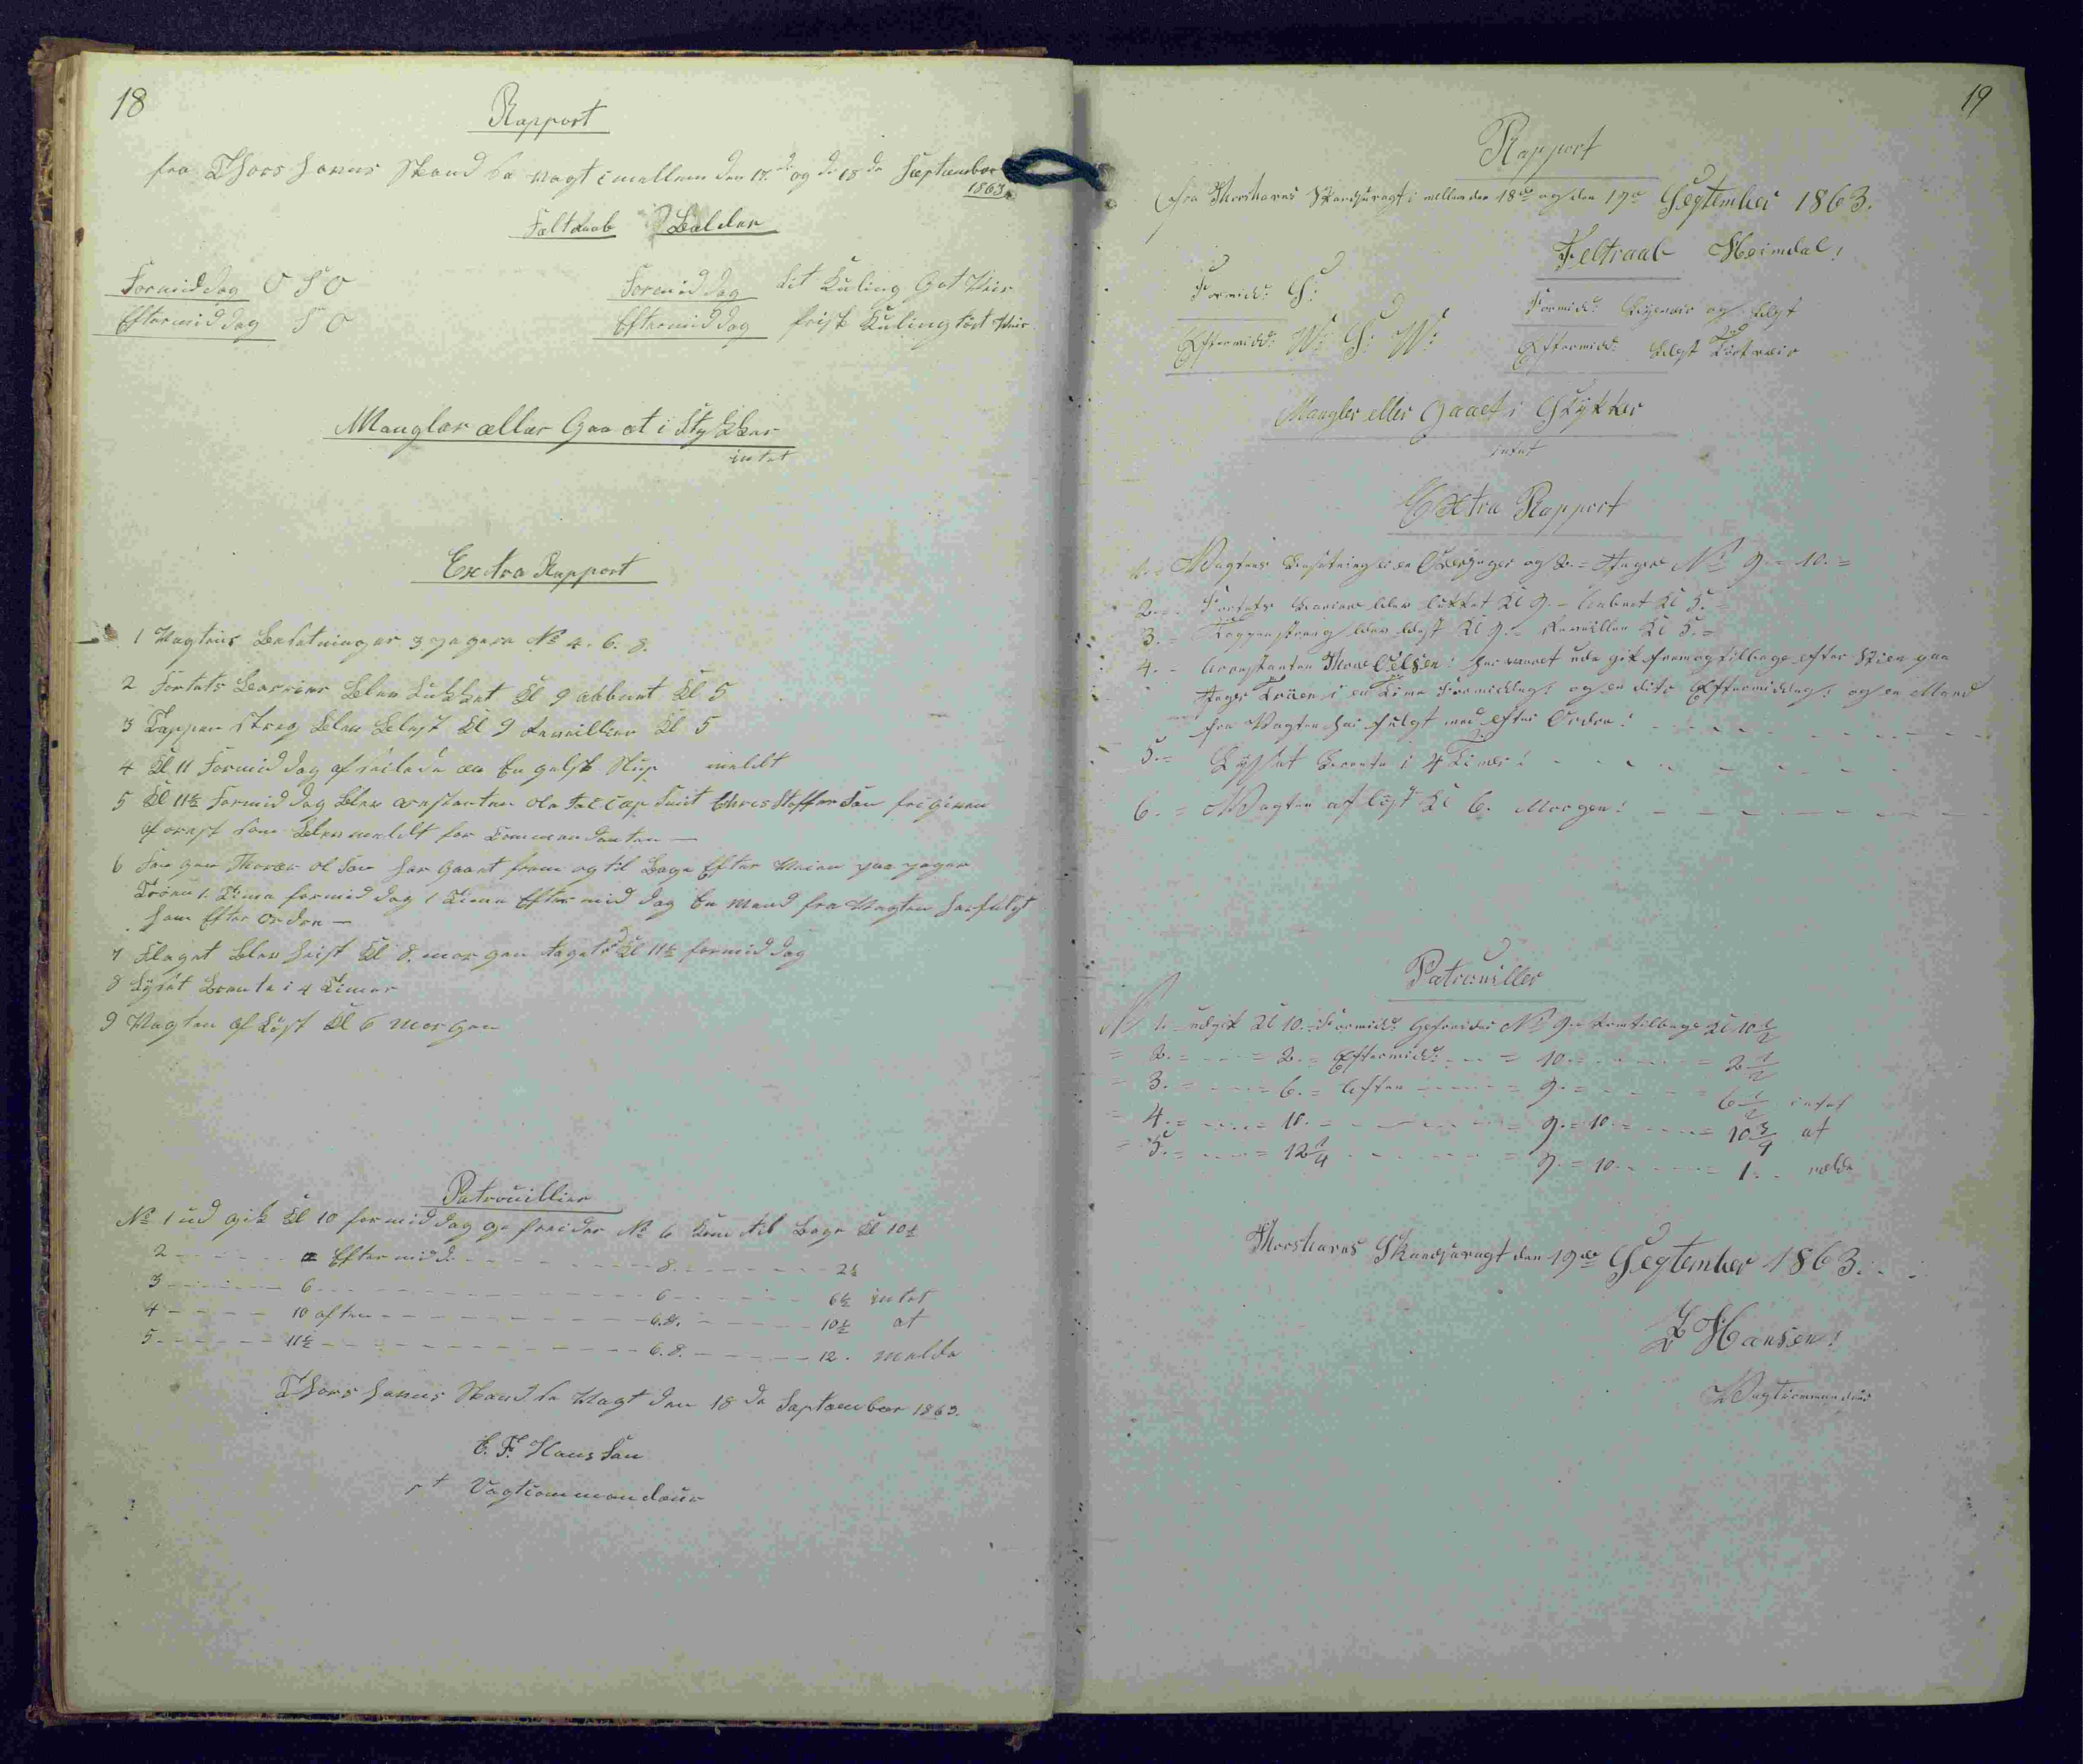 18
Rapport
fra Thorshavns Skandse vagt imellem den 17de og de 18de September
1863
Feltraab Balder
Formiddag O S O
Eftermiddag S O
Formiddag Lit Kuling Got Veir
Eftermiddag frisk Kuling tort Veir
Mangler eller Gaaet i Stykker
intet
Extra Rapport
1 Vagtens Besetning er 3 jægere No 4. 6. 8.
2 Fortets Barrier blev Lukket Kl 9 aabbnet Kl 5
3 Tappenstreg blev blæst Kl 9 Reveillien Kl 5
4 Kl 11 Formiddag afseilede en Engelsk Slup meldt
5 Kl 11½ Formiddag blev arestanten Christoffersen frigiven
af arest som blev meldt for Kommandanten —
6 Fangen Thorær Olsen har Gaaet frem og til Bage Efter Veien paa jæger
Trøen 1. Time formiddag 1 Time Eftermiddag En Mand fra Vagten har fulgt
ham Efter Ordre —
7 Flaget blev heist Kl 8. morgen taget Kl 11½ formiddag
8 Lyset Brente i 4 Timer
9 Vagten af Løst Kl 6 Morgen
Patrouillier
No 1 ud gik Kl 10 formiddag gefreider No 6 Kom til Bage Kl 10½
2 - - - Eftermidd. - - - 8. - - - 2½
3 - - - 6 - - - 6 - - - 6½ intet
4 - - - 10 aften - - - 6.8. - - - 10½ at
5 - - - 11½ - - - 6.8. - - - 12. melde
Thorshavns Skandse Vagt den 18de September 1863.
C. F. Hanssen
Vagtcommandeur
19
Rapport
fra Thorshavns Skandsevagt i mellem den 18de og den 19de September 1863.
Feltraab Heimdal!
Formidd: S:
Eftermidd: W: S: W:
Formidd: og
Eftermidd:
Mangler eller Gaaet i Stykker
intet
Extra Rapport
1. = Vagtens Besætning er en Overjæger og 2. = Jægere No 9. = 10. =
2. = Fortets Bariere blev lukket Kl 9. = aabnet Kl 5. =
3. = Tappenstreg blev blæst Kl 9. = Reveillen Kl 5. =
4. = Arrestanten Thoræ Olsen! har været ude gik frem og tilbage efter Stien paa
Jæger Trøen i en Time Formiddag: og en dito Eftermiddag: og en Mand
fra Vagten har fulgt med efter Ordre!
5. = Lysset Brente i 4 Timer!
6. = Vagten afløst Kl 6. Morgen!
Patrouiller
No 1. = udgik Kl 10. = Formidd: Gefreider No 9. = kom tilbage Kl 10½
= 2. = - - - = 2. = Eftermidd: - - = 10. = - - - = 2½
= 3. = - - - = 6. = Aften - - - = 9. = - - - = 6½ intet
= 4. = - - - = 10. = - - - = 9. = 10. = - - - = 10¾ at
= 5. = - - - = 12¼ - - - = 9. = 10. - - - = 1. - melde
Thorshavns Skandsevagt den 19de September 1863.
Hansen!
Vagtcommandeur